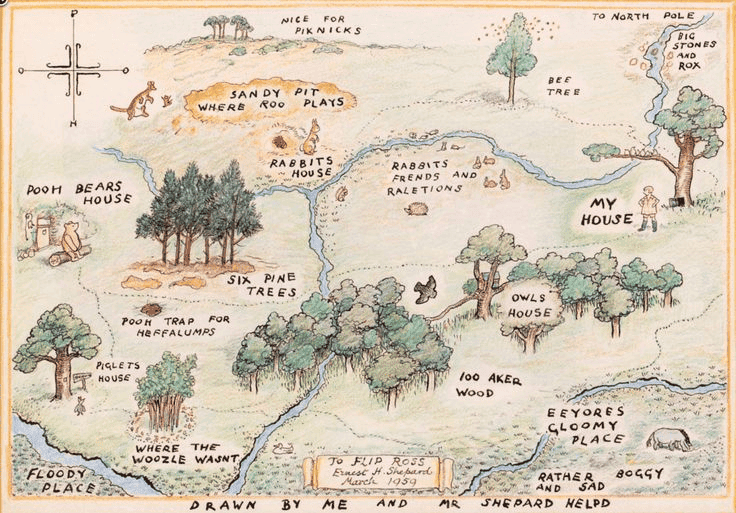 NICE FOR
PIKNICKS
TO NORTH POLE
BIG
STONES
AND
ROX
BEE
TREE
SANDY PIT
WHERE ROO PLAYS
N
RABBITS
HOUSE
RABBITS
FRENDS AND
RALETIONS
POOH BEARS
HOUSE
MY
HOUSE
SIX PINE
TREES
OWLS
HOUSE
POOH TRAP FOR
HEFFALUMPS
PIGLETS
HOUSE
100 AKER
WOOD
EEYORES
GLOOMY
PLACE
WHERE THE
WOOZLE WASNT
FLOODY
PLACE
TO FLIP ROSS
Ernest H. Shepard
March 1959
RATHER BOGGY
AND SAD
DRAWN BY ME AND MR SHEPARD HELPD